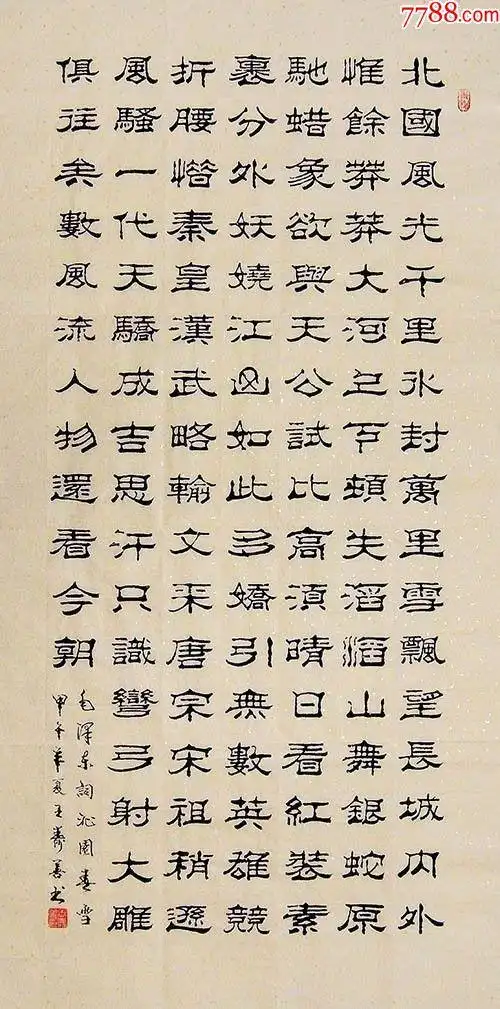 7788.com
北國風光千里氷封萬里雪飄望長城内外
惟餘莽莽大河上下頓失滔滔山舞銀蛇原
馳蜡象欲與天公試比高須晴日看紅裝素
裹分外妖嬈江山如此多嬌引無數英雄競
折腰惜秦皇漢武略輸文采唐宗宋祖稍遜
風騷一代天驕成吉思汗只識彎弓射大雕
俱往矣數風流人物還看今朝
毛澤東詞沁園春雪
甲午年夏王善书